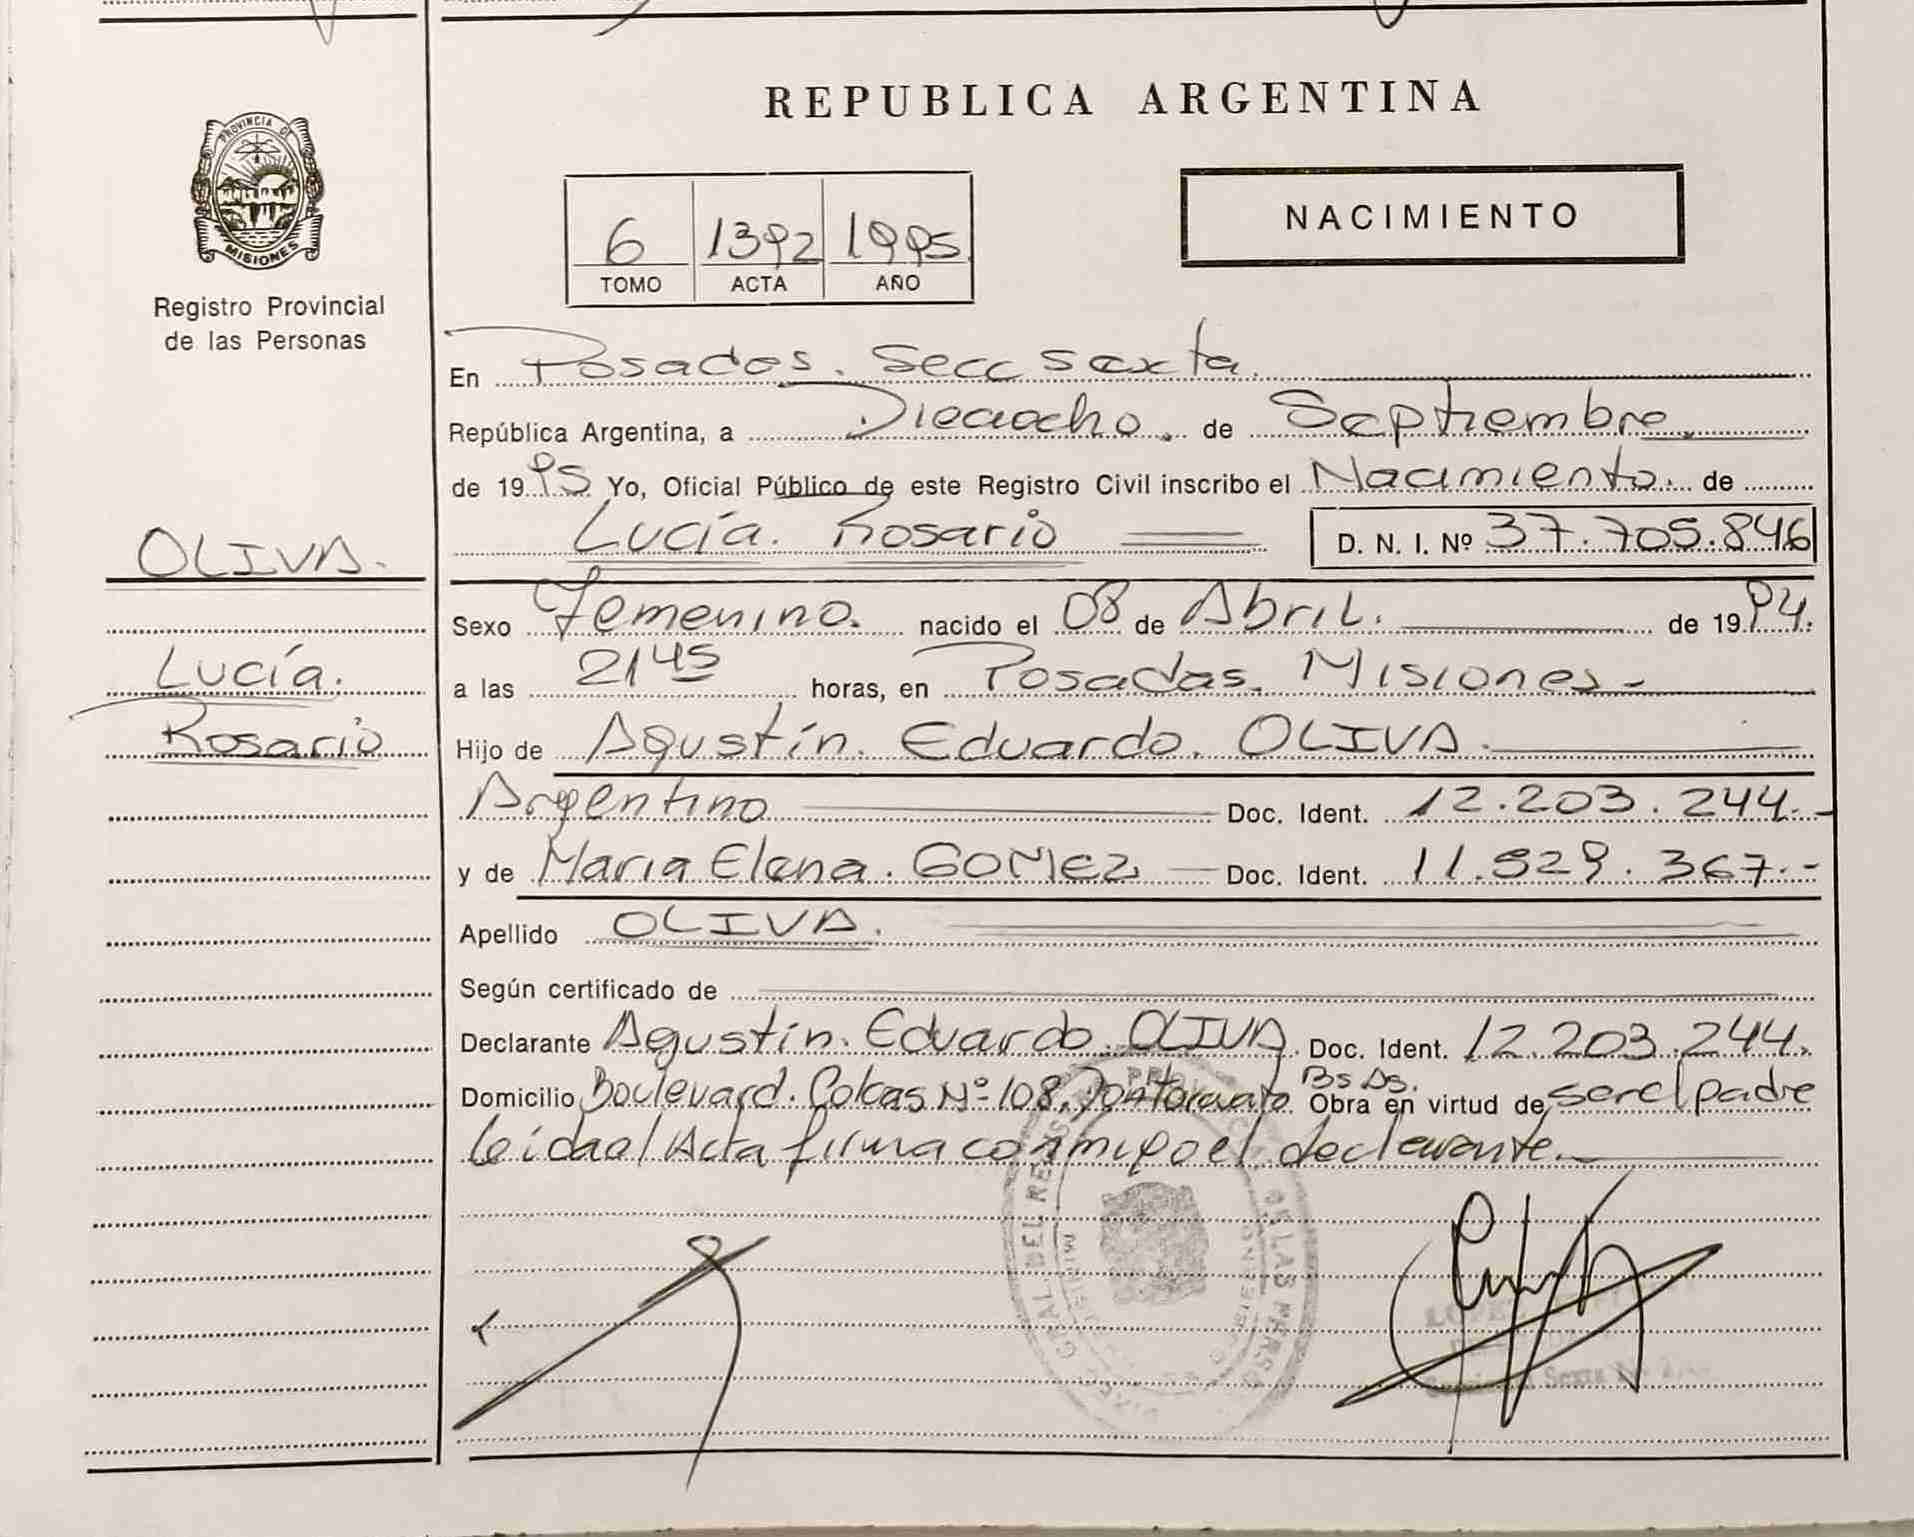 REPUBLICA ARGENTINA
PROVINCIA DE
MISIONES
Registro Provincial
de las Personas
6 1392 1995
TOMO ACTA AÑO
NACIMIENTO
En Posadas. Secc sexta.
República Argentina, a Dieciocho. de Septiembre.
de 1995 Yo, Oficial Público de este Registro Civil inscribo el Nacimiento. de
OLIVA.
Lucía. Rosario D. N. I. Nº 37.705.846
Sexo Femenino. nacido el 08 de Abril. de 1994.
Lucía.
a las 21 45 horas, en Posadas. Misiones-
Rosario
Hijo de Agustín. Eduardo. OLIVA.
Argentino Doc. Ident. 12.203.244.-
y de Maria Elena. GOMEZ Doc. Ident. 11.529.367.-
Apellido OLIVA.
Según certificado de
Declarante Agustín. Eduardo. OLIVA. Doc. Ident. 12.203.244.
Domicilio Boulevard. Nº 108. Bs As. Obra en virtud de ser el padre
leida el Acta firma conmigo el declarante.